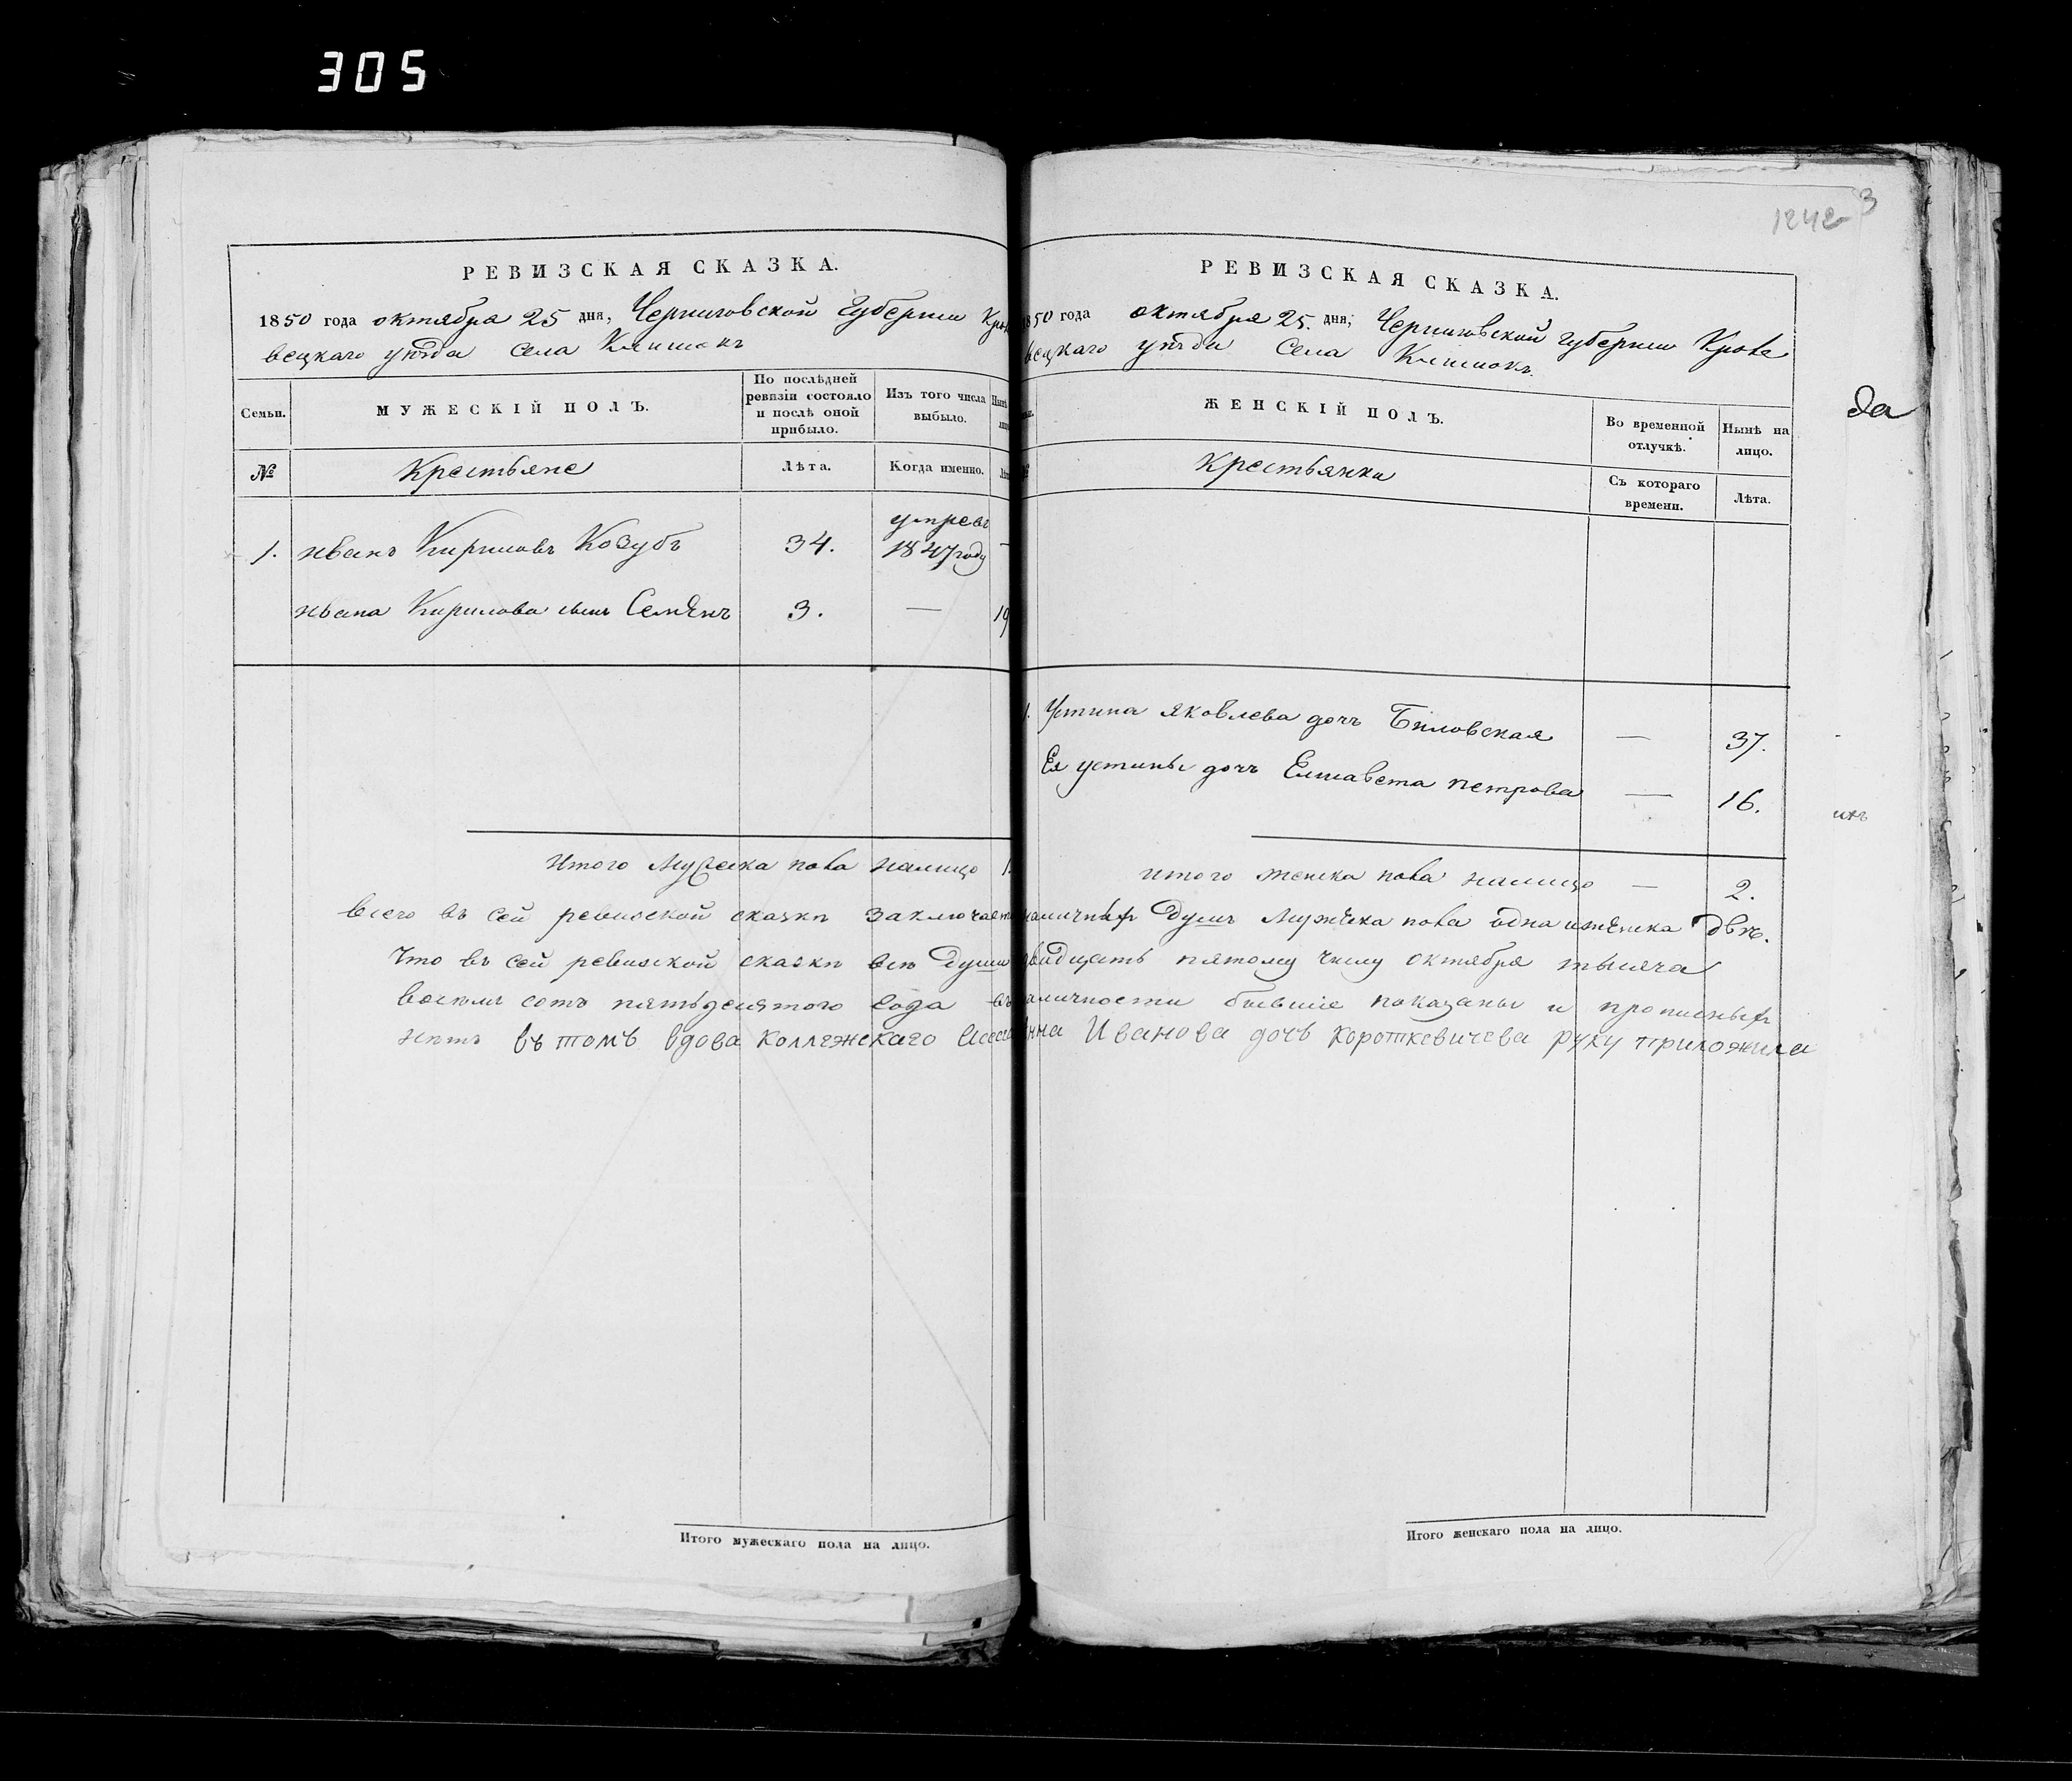 305
1242 3
РЕВИЗСКАЯ СКАЗКА.
1850 года октября 25 дня, Черниговской Губернии Кроле
вецкаго уѣзда Села Клишокъ
Семьи. МУЖЕСКІЙ ПОЛЪ. По послѣдней ревизіи состояло и послѣ оной прибыло. Изъ того числа выбыло. Нынѣ
№ Крестьяне Лѣта. Когда именно.
умре въ
1. иванъ Кириловъ Козубъ 34. 1847 году —
ивана Кирилова сынъ Семенъ 3. — 19
итого мужеска пола налицо 1.
РЕВИЗСКАЯ СКАЗКА.
1850 года октября 25. дня, Черниговской губернии Кроле
вецкаго уѣзда Села Клишокъ.
ЖЕНСКІЙ ПОЛЪ. Во временной отлучкѣ. Нынѣ на лицо.
№ Крестьянки Съ котораго времени. Лѣта.
1. Устина яковлева дочъ Биловская — 37.
Ея устины дочъ Елисавета петрова — 16.
итого женска пола налицо — 2.
всего въ сей ревиской сказки заключается наличныхъ Душъ мужеска пола одна и женска двѣ.
Что въ сей ревиской сказки всѣ Души двадцать пятому числу октября тысяча
восемъ сотъ пятьдесятого года въ наличности бывшіе показаны и прописныхъ
нѣтъ въ томъ вдова коллежскаго Анна Иванова дочъ Короткевичева руку приложила
Итого мужескаго пола на лицо.
Итого женскаго пола на лицо.
да
ихъ